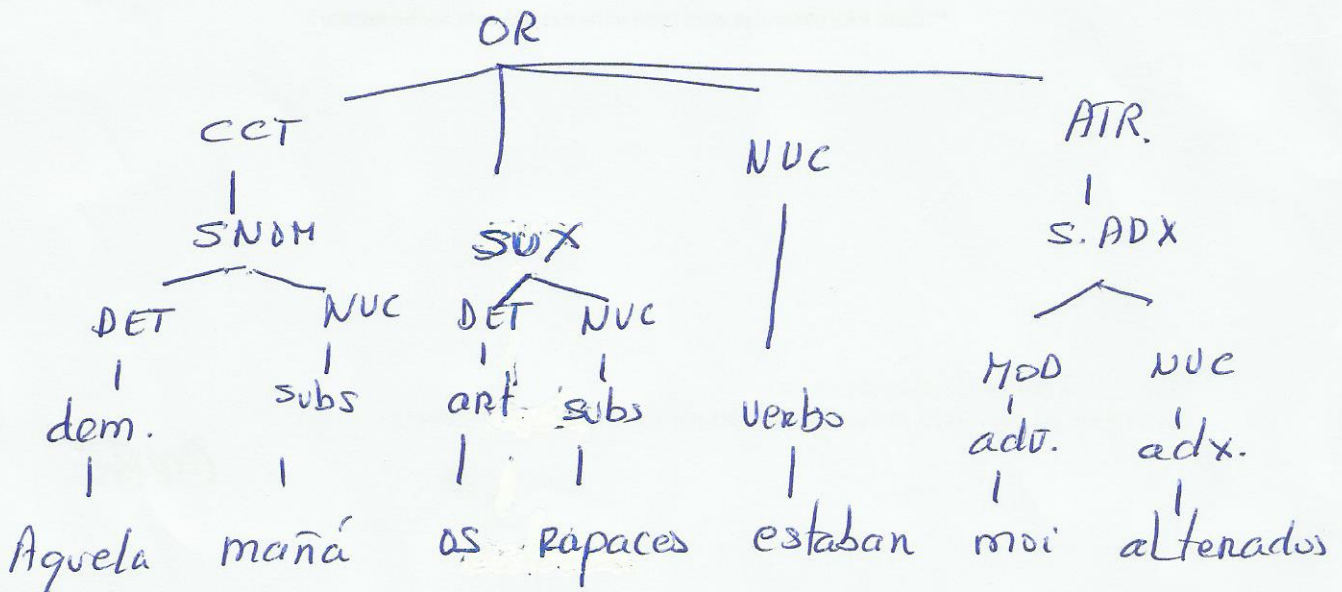 OR
CCT NUC ATR.
SNOM SUX S. ADX
DET NUC DET NUC MOD NUC
dem. subs art. subs verbo adv. adx.
Aquela mañá os rapaces estaban moi alterados